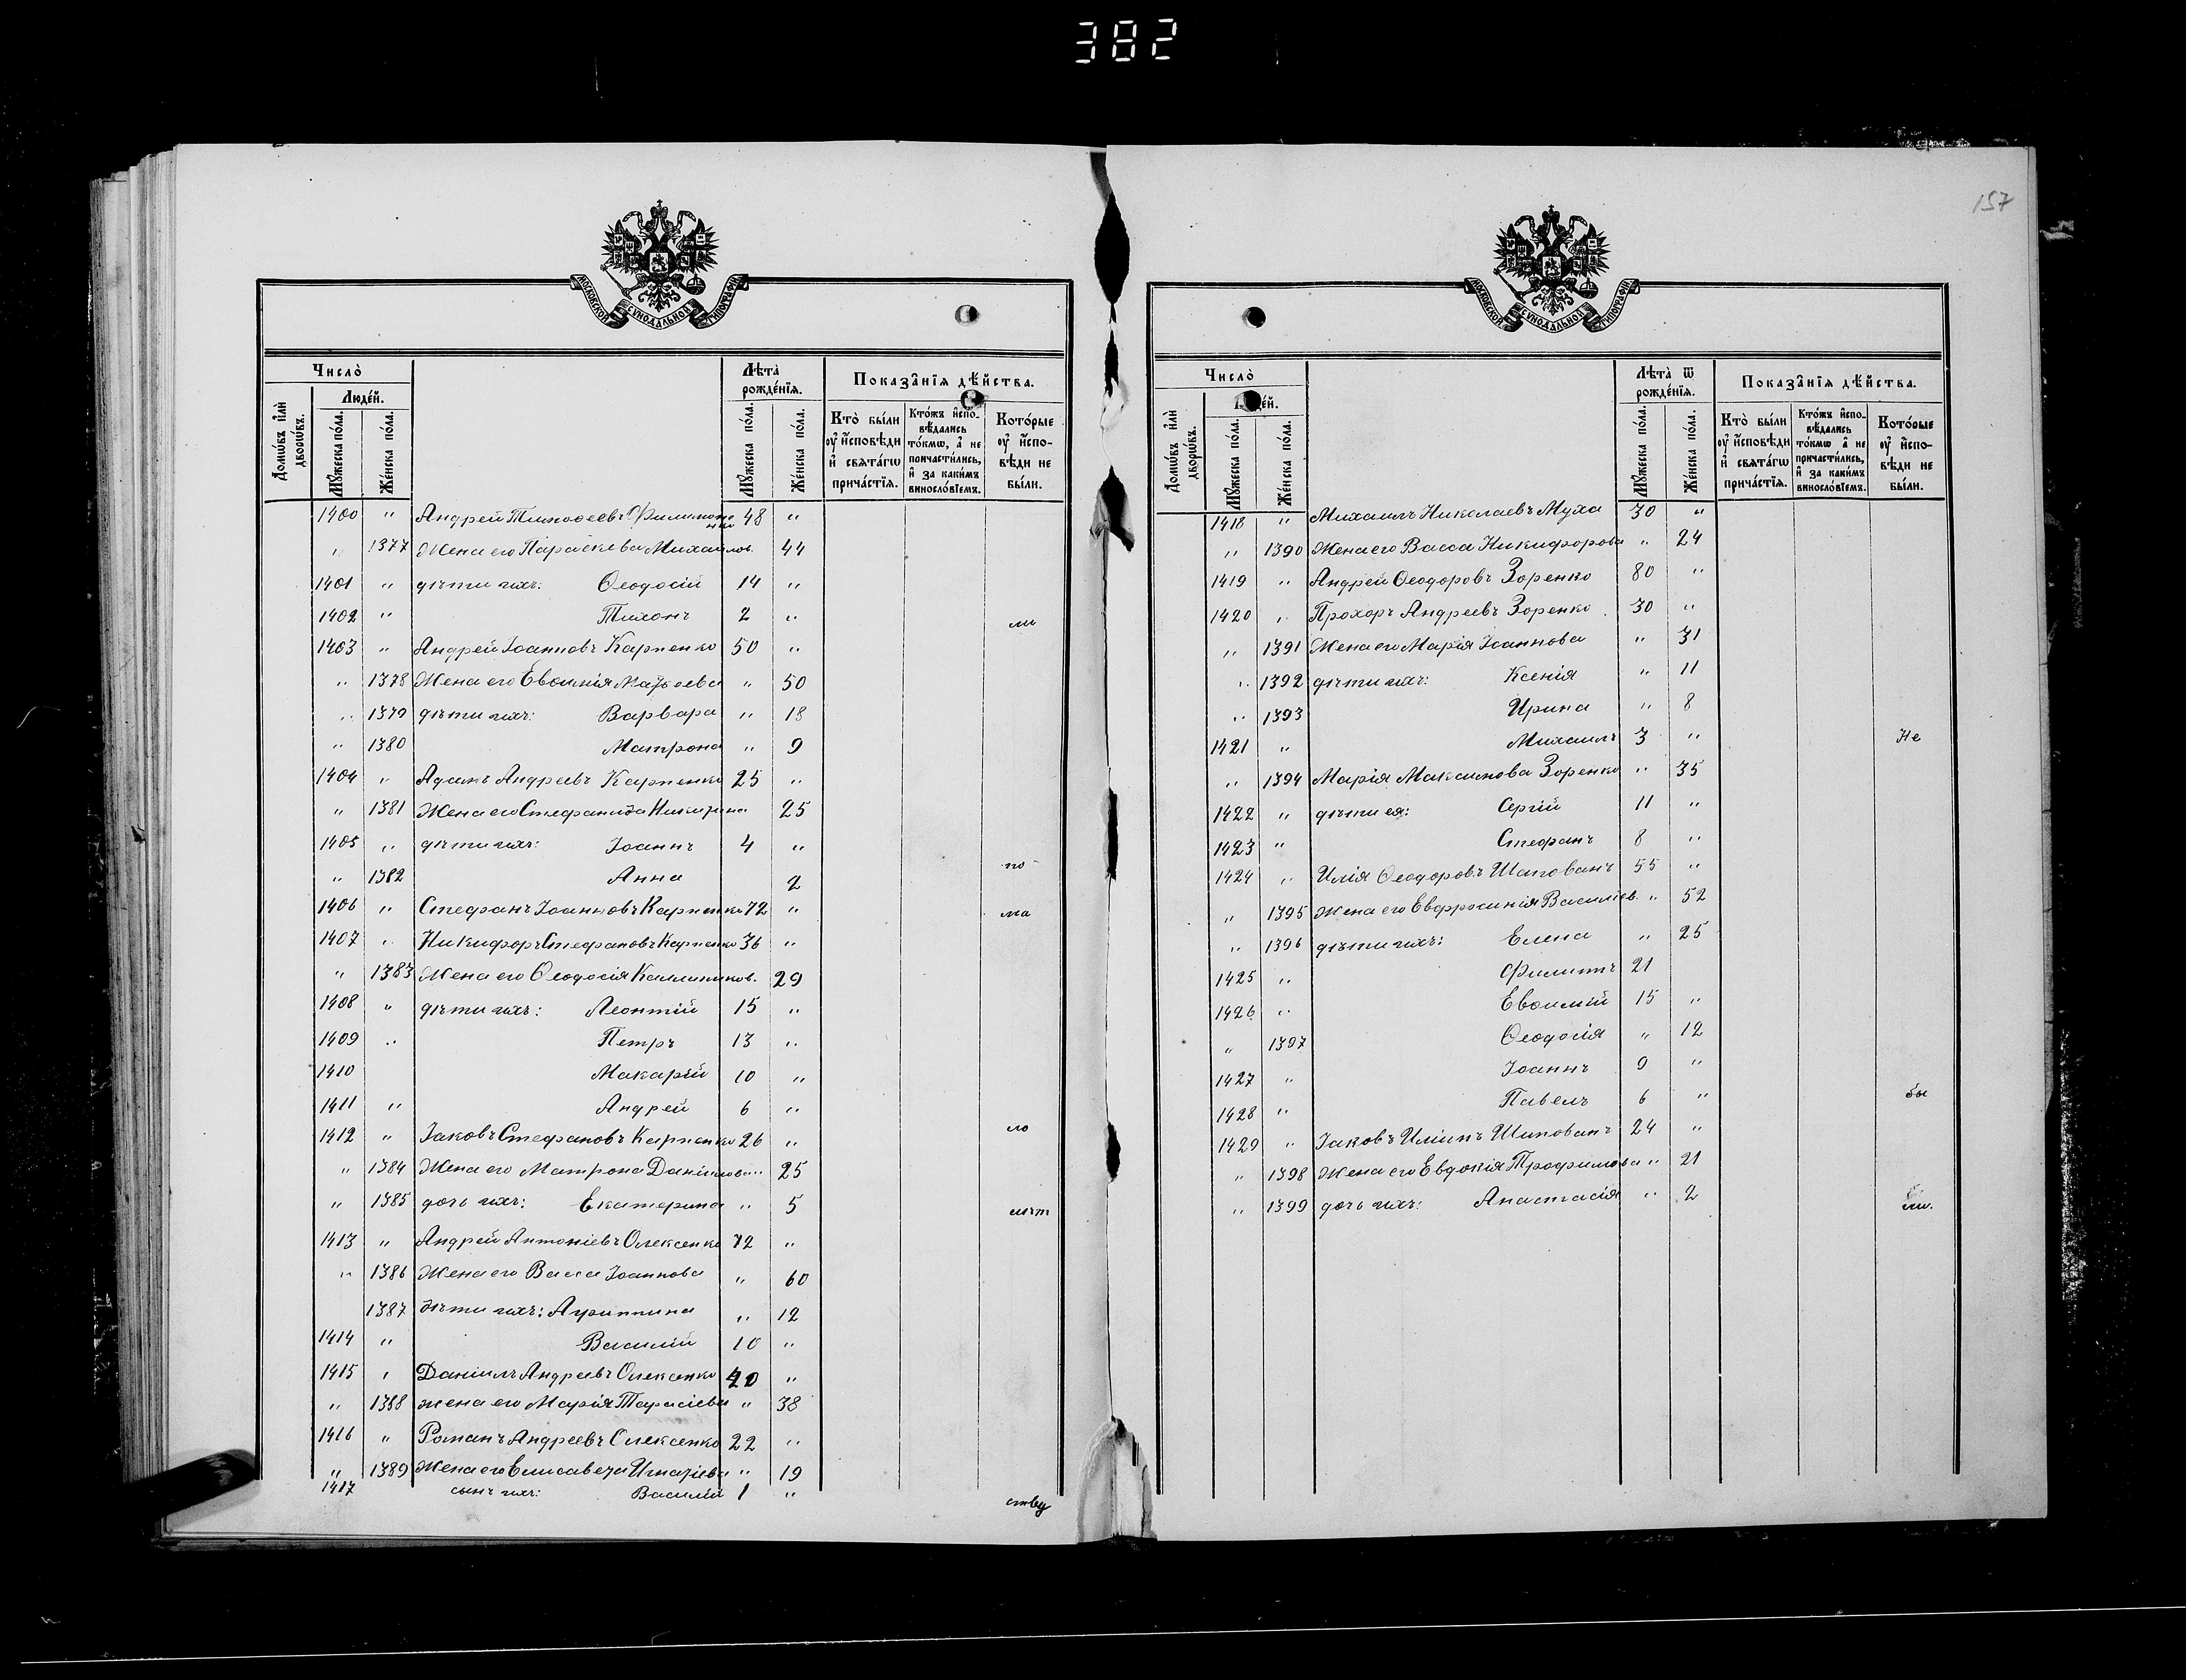 382
157
МОСКОВСКОЙ СѴНОДАЛЬНОЙ ТИПОГРАФІИ
Число̀
Людéй.
Домѡ́въ и҆лѝ дворѡ́въ.
Мꙋ́жеска по́ла.
Же́нска по́ла.
Лѣ̑та̀ рожде́нїѧ.
Мꙋ́жеска по́ла.
Же́нска по́ла.
Показа̑нїѧ дѣ́йства.
Кто̀ бы́ли оу҆ и҆́сповѣди и҆ свѧта́гѡ прича́стїѧ.
Кто́жъ и҆спо-вѣ́дались то́кмѡ, а҆ не причасти́лись, и҆ за каки́мъ винослóвїемъ.
Кото́рые оу҆ и҆́спо-вѣди не бы́ли.
1400 " Андрей Тимоѳеевъ Филимоненко 48 "
" 1377 Жена его Параскева Михайлов. 44
1401 " дѣти ихъ: Ѳеодосій 14 "
1402 " Тихонъ 2 " ли
1403 " Андрей Іоанновъ Карпенко 50 "
" 1378 Жена его Евѳимія Матѳеева " 50
" 1379 дѣти ихъ: Варвара " 18
" 1380 Матрона " 9
1404 " Адамъ Андреевъ Карпенко 25 "
" 1381 Жена его Стефанида Никитина 25
1405 " дѣти ихъ: Іоаннъ 4 "
" 1382 Анна 2 по
1406 " Стефанъ Іоанновъ Карпенко 72 " ма
1407 " Никифоръ Стефановъ Карпенко 36 "
" 1383 Жена его Ѳеодосія Каллиников. 29
1408 " дѣти ихъ: Леонтій 15 "
1409 " Петръ 13 "
1410 Макарій 10 "
1411 " Андрей 6 "
1412 " Іаковъ Стефановъ Карпенко 26 " ло
" 1384 Жена его Матрона Даніилова " 25
" 1385 дочь ихъ: Екатерина " 5 лѣт
1413 " Андрей Антоніевъ Олексенко 72 "
" 1386 Жена его Васса Іоаннова " 60
1387 дѣти ихъ: Агриппина " 12
1414 " Василій 10 "
1415 " Даніилъ Андреевъ Олексенко 40 "
" 1388 жена его Марія Тарасіева " 38
1416 " Романъ Андреевъ Олексенко 22 "
" 1389 Жена его Елисавета Игнатіева " 19
1417 сынъ ихъ: Василій 1 " ству
МОСКОВСКОЙ СѴНОДАЛЬНОЙ ТИПОГРАФІИ
Число̀
Людéй.
Домѡ́въ и҆лѝ дворѡ́въ.
Мꙋ́жеска по́ла.
Же́нска по́ла.
Лѣ̑та̀ ѿ рожде́нїѧ.
Мꙋ́жеска по́ла.
Же́нска по́ла.
Показа̑нїѧ дѣ́йства.
Кто̀ бы́ли оу҆ и҆́сповѣди и҆ свѧта́гѡ прича́стїѧ.
Кто́жъ и҆спо-вѣ́дались то́кмѡ а҆ не причасти́лись, и҆ за каки́мъ винослóвїемъ.
Кото́рые оу҆ и҆́спо-вѣди не бы́ли.
1418 " Михаилъ Николаевъ Муха 30 "
" 1390 Жена его Васса Никифорова " 24
1419 " Андрей Ѳеодоровъ Зоренко 80 "
1420 " Прохоръ Андреевъ Зоренко 30 "
" 1391 Жена его Марія Іоаннова " 31
" 1392 дѣти ихъ: Ксенія " 11
" 1393 Ирина " 8
1421 " Михаилъ 3 " Не
" 1394 Марія Максимова Зоренко " 35
1422 " дѣти ея: Сергій 11 "
1423 " Стефанъ 8 "
1424 " Илія Ѳеодоровъ Шаповалъ 55 "
" 1395 Жена его Евфросинія Василіев. " 52
" 1396 дѣти ихъ: Елена " 25
1425 " Филиппъ 21
1426 " Евѳимій 15 "
" 1397 Ѳеодосія " 12
1427 " Іоаннъ 9 "
1428 " Павелъ 6 " бы
1429 " Іаковъ Иліинъ Шаповалъ 24 "
" 1398 Жена его Евдокія Трофимова " 21
" 1399 дочь ихъ: Анастасія " 2 ли.